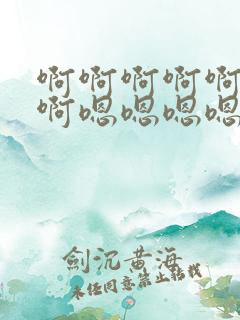 啊啊啊啊啊
啊嗯嗯嗯嗯
劍沉黄海
未任同意禁止转载